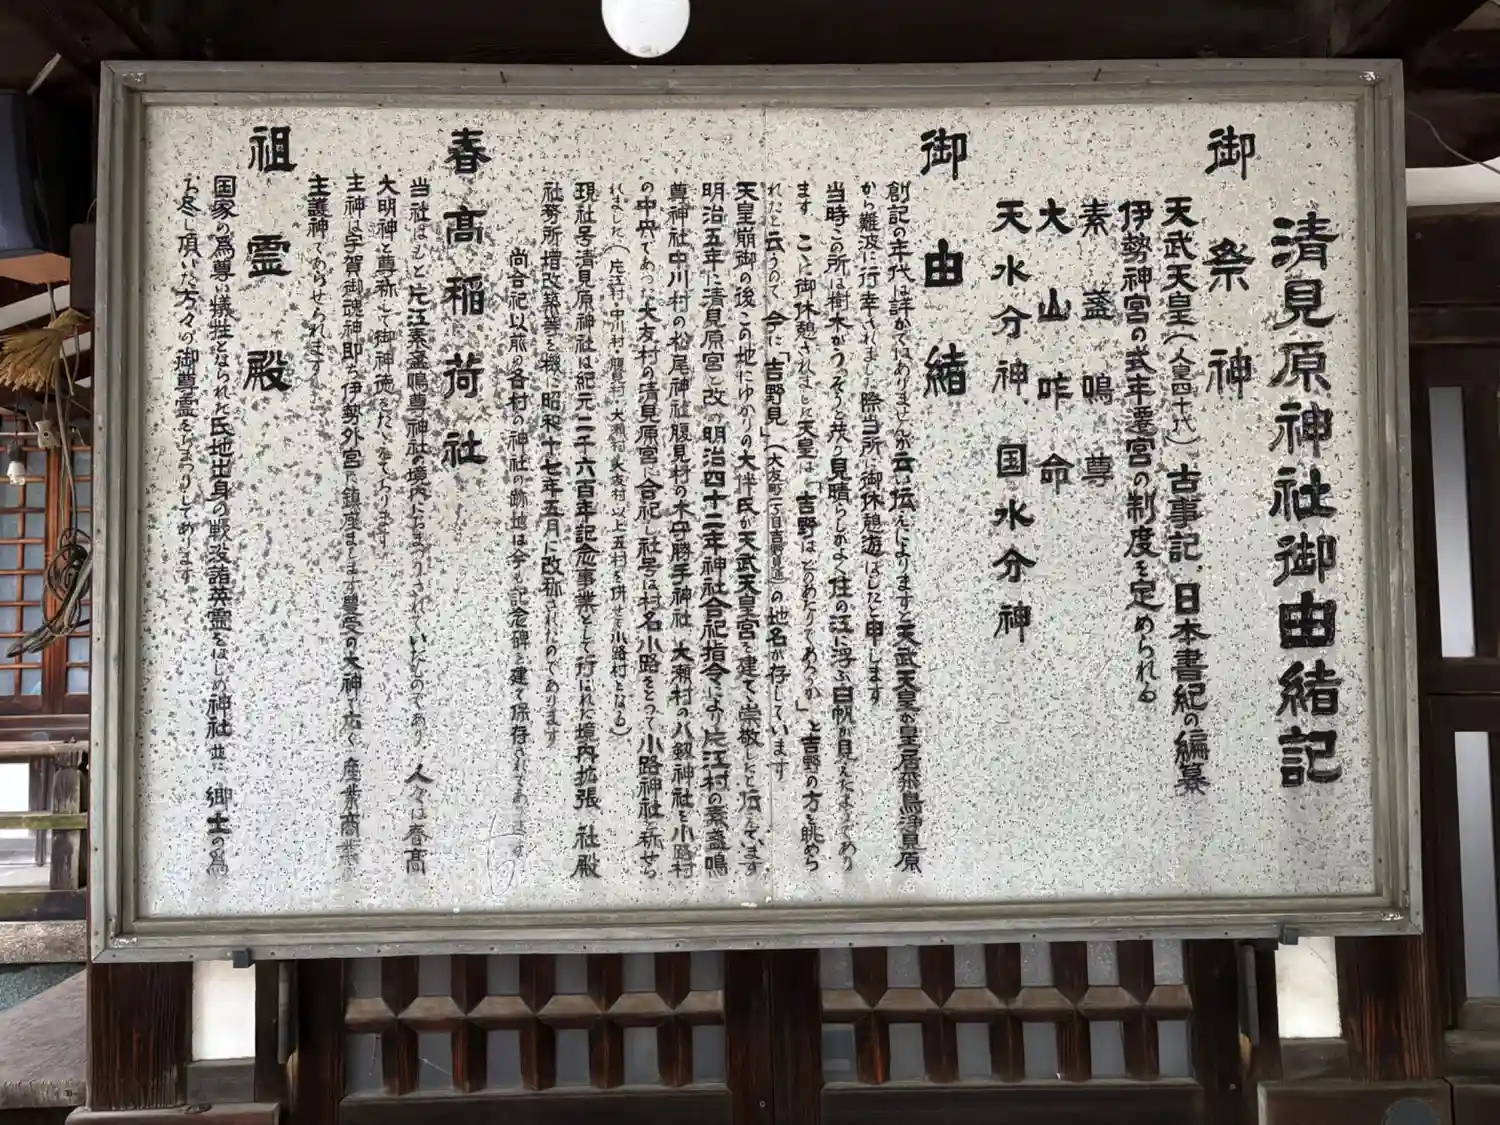 清見原神社御由緒記
御祭神
天武天皇(人皇四十代) 古事記.日本書紀の編纂
伊勢神宮の式年遷宮の制度を定められる
素盞鳴尊
大山咋命
天水分神 国水分神
御由緒
創記の年代は詳かではありませんが云い伝えによりますと天武天皇が皇居飛鳥浄見原
から難波に行幸されました際当所に御休憩遊ばしたと申します
当時この所は樹木がうっそうと茂り見晴らしがよく住の江に浮ぶ白帆が見えたようであり
ます ここに御休憩されました天皇は「吉野はどのあたりであろうか」と吉野の方を眺めら
れたと云うので 今に「吉野見」(大友町一丁目吉野見通)の地名が存しています
天皇崩御の後この地にゆかりの大伴氏が天武天皇宮を建て崇敬したと伝えています
明治五年に清見原宮と改め明治四十二年神社合祀指令により片江村の素盞鳴
尊神社中川村の松尾神社腹見村の木守勝手神社 大瀬村の八剱神社を小路村
の中央であった大友村の清見原宮に合祀し社号は村名小路をとって小路神社と称せら
れました(片江村 中川村 腹見村 大瀬村 大友村 以上五村を併せて小路村となる)
現社号清見原神社は紀元二千六百年記念事業として行はれた境内拡張 社殿
社務所増改築等を機に昭和十七年五月に改称されたのであります
尚合祀以前の各村の神社の跡地は今も記念碑を建て保存されてあります
春高稲荷社
当社はもと片江素盞鳴尊神社の境内におまつりされていたものであり 人々は春高
大明神と尊称して御神徳をたたえております
主神は宇賀御魂神即ち伊勢外宮に鎮座まします豊受の大神で広く産業商業の
主護神であらせられます
祖霊殿
国家の為尊い犠牲となられた氏地出身の戦没諸英霊をはじめ神社並に郷土の為
に尽し頂いた方々の御尊霊をおまつりしてあります